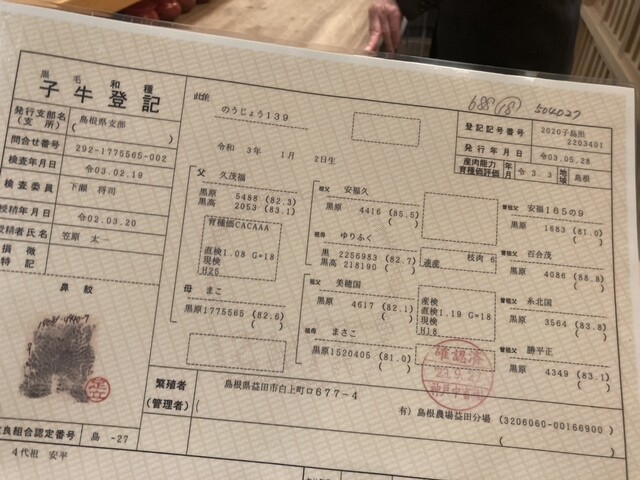 黒毛和種
子牛登記
発行支部名
(支所)
島根県支部
( )
問合せ番号
292-1775565-002
検査年月日
令03.02.19
検査委員
下瀬 将司
授精年月日
令02.03.20
授精者氏名
笠原 太一
損徴
特記
鼻紋
良組合認定番号
島 -27
4代祖 安平
此牛
のうじょう139
令和 3年 1月 2日生
688 (18) 504027
登記記号番号
2020子島黒
2203401
発行年月日
令03.05.28
産肉能力
育種価評価
年月
令 3. 3
地域
島根
父 久茂福
黒原 5488 (82.3)
黒高 2053 (83.1)
育種価CACAAA
直検1.08 G=18
現検
H26
母 まこ
黒原1775565 (82.6)
( )
祖父 安福久
黒原 4416 (85.5)
( )
祖母 ゆりふく
黒 2256983 (82.7)
黒高 218190 ( )
祖父 美穂国
黒原 4617 (82.1)
( )
祖母 まさこ
黒原1520405 (81.0)
( )
連産
枝肉 6
産検
直検1.19 G=18
現検
H18
曽祖父 安福165の9
黒原 1683 (81.0)
( )
曽祖父 百合茂
黒原 4086 (88.8)
( )
曽祖父 糸北国
黒原 3564 (83.8)
( )
曽祖父 勝平正
黒原 4349 (83.1)
( )
確認済
繁殖者
(管理者)
島根県益田市白上町ロ677-4
有)島根農場益田分場 (3206060-00166900 )
( )